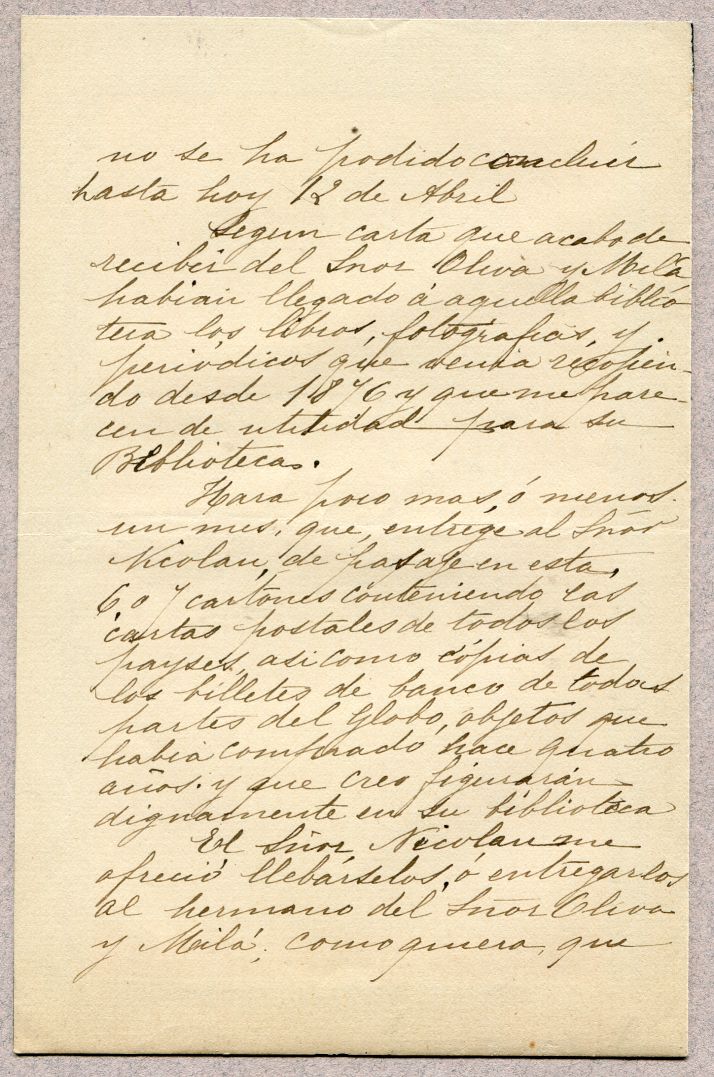 no se ha podido concluir
hasta hoy 12 de Abril
Segun carta que acabo de
recibir del Snor Oliva y Milá
habian llegado á aquella biblio
teca los libros, fotografias, y
periodicos que venia recopien-
do desde 1876 y que me pare-
cen de utilidad para su
Biblioteca.
Hara poco mas, ó menos
un mes, que, entrege al Snor
Nicolau, de pasaje en esta,
6 o 7 cartones conteniendo las
cartas postales de todos los
payses, asi como cópias de
los billetes de banco de todas
partes del Globo, objetos que
habia comprado hace quatro
años. y que creo figurarán
dignamente en su biblioteca
El Sñor Nicolau me
ofreció llebárselos, ó entregarlos
al hermano del Sñor Oliva
y Milá; como quiera, que